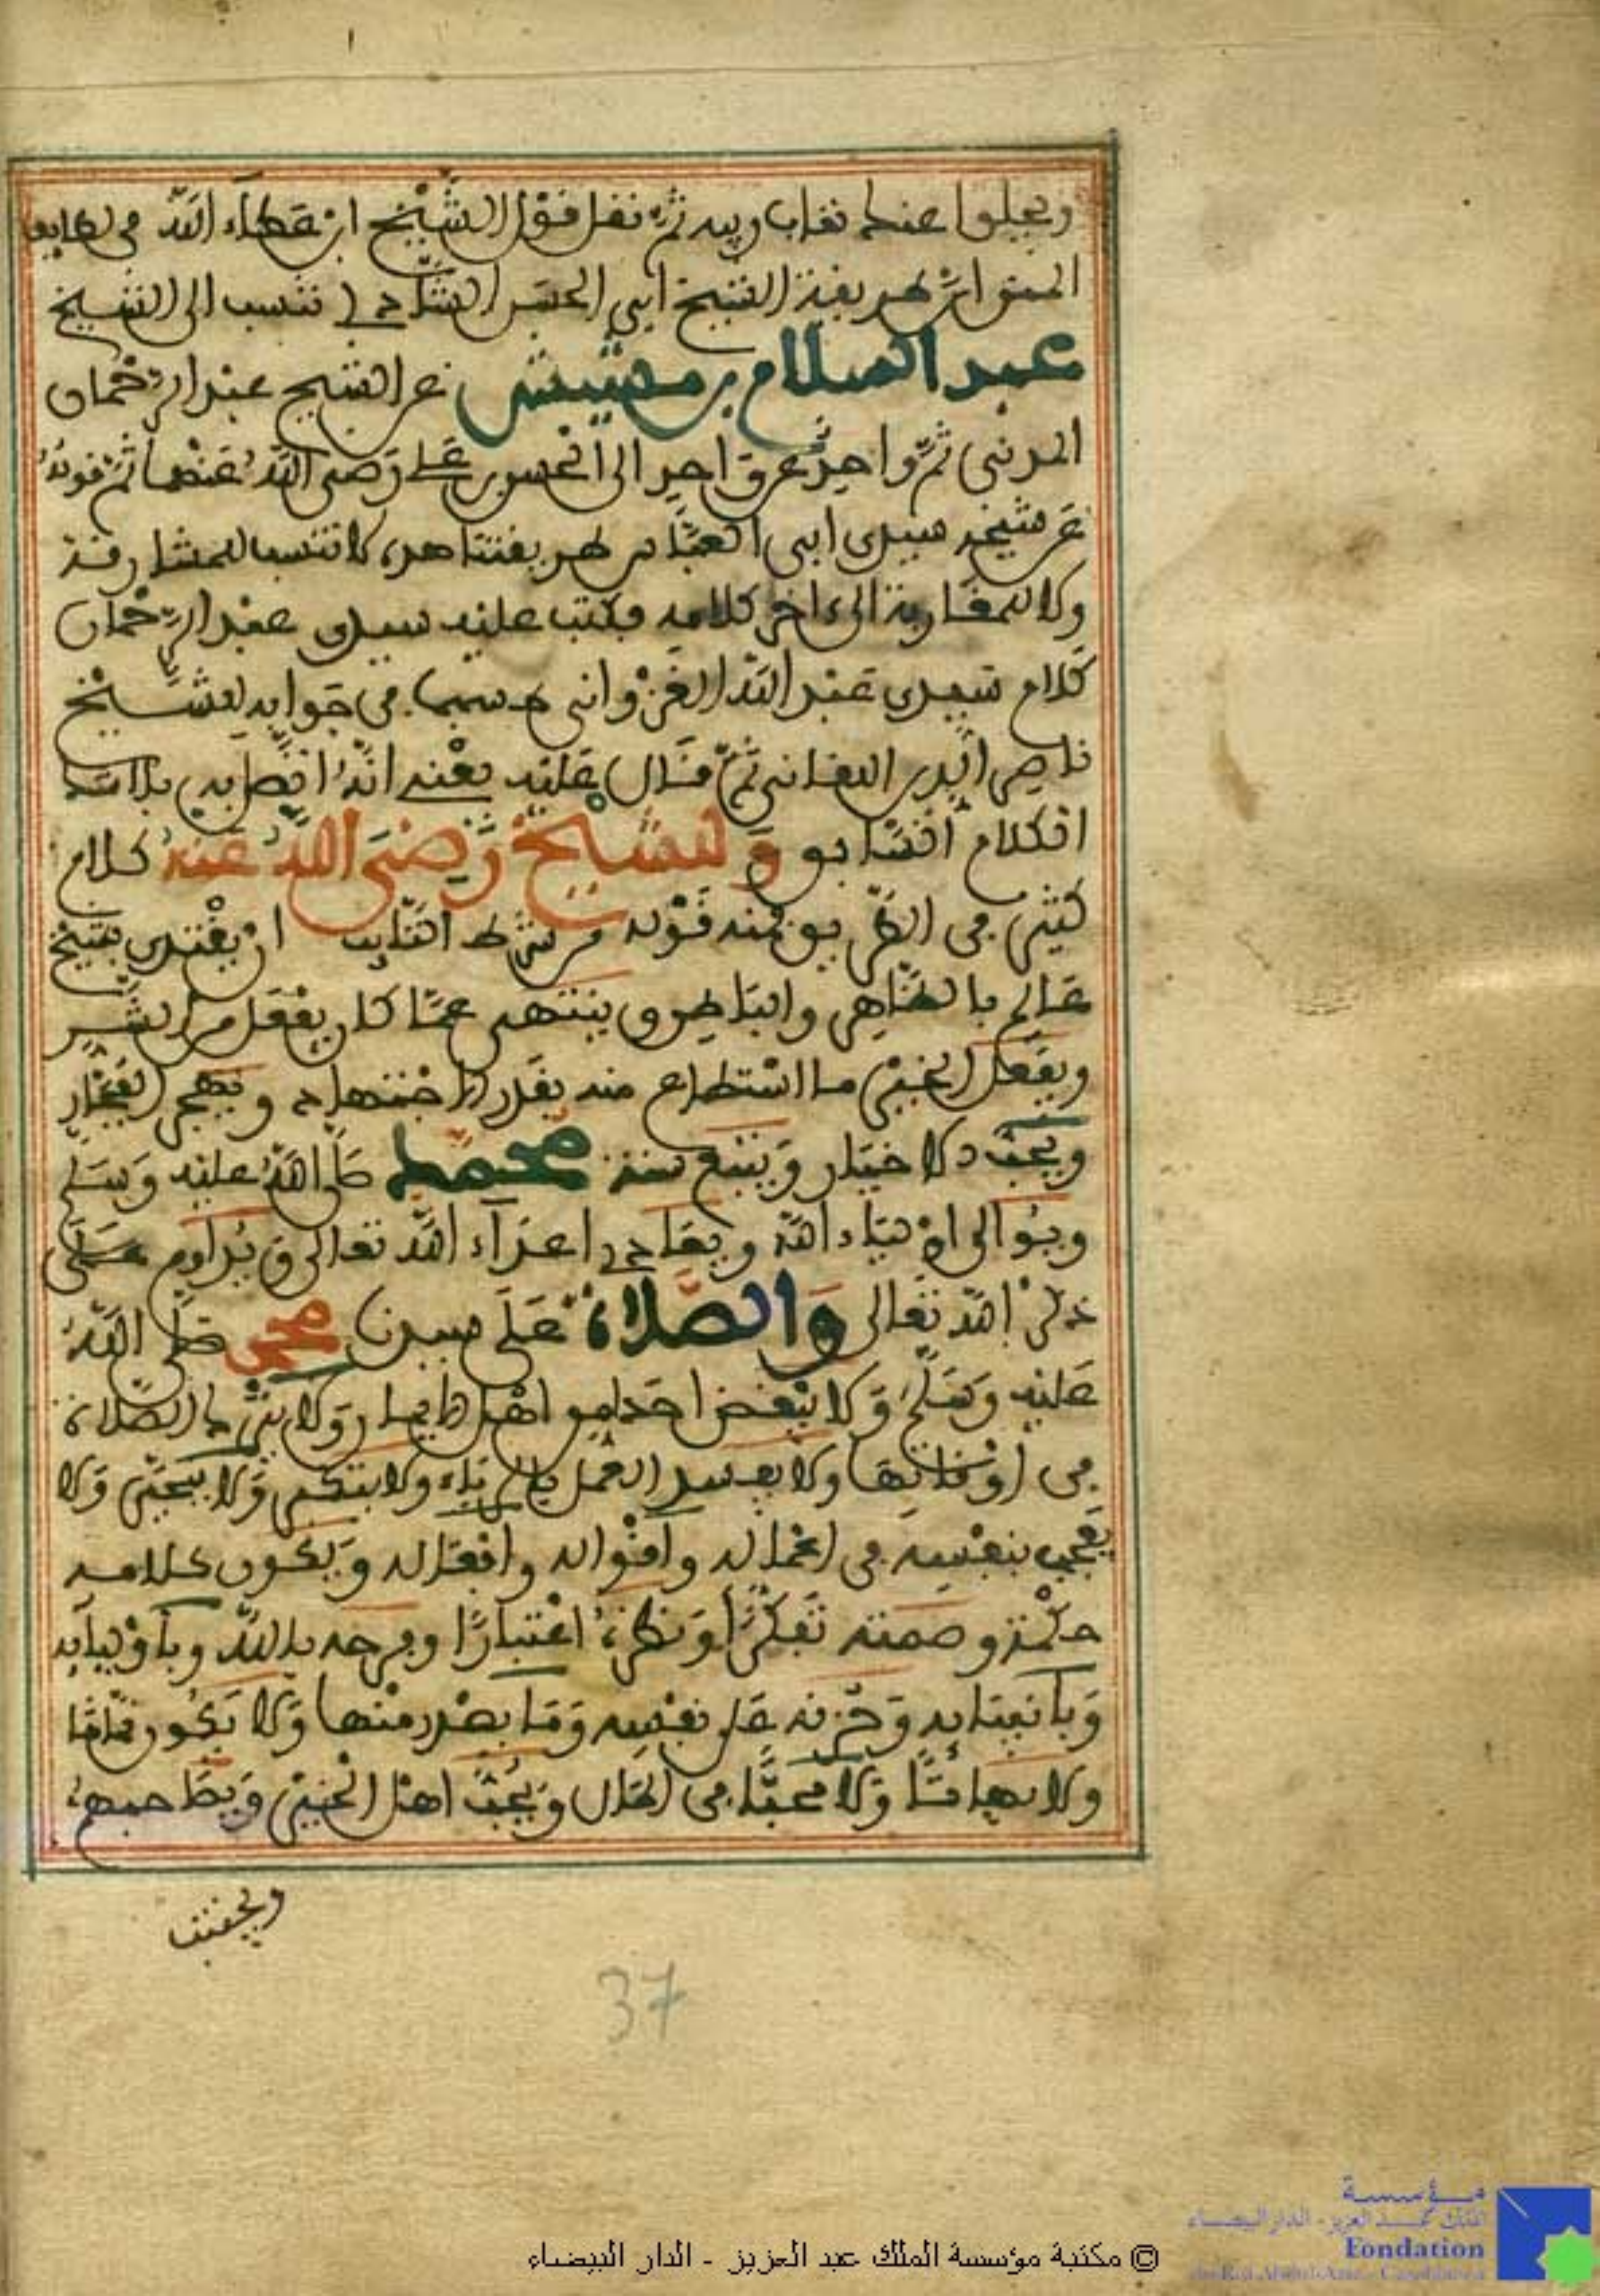 عنه ثم نقل قول الشيخ ابن عطاء الله في
طريقة الشيخ ابي الحسن الشاذلي تنسب الى الشيخ
عبد السلام بن مشيش عن الشيخ عبد الرحمان
المدني ثم واحد عن واحد الى الحسن بن علي رضي الله عنهما ثم قوله
عن شيخه سيدي ابي العباس طريقتنا هذه لا تنسب للمشارقة
ولا للمغاربة الى ءاخر كلامه فكتب عليه سيدي عبد الرحمان
كلام سيدي عبد الله الغزواني في جوابه للشيخ
ناصر الدين اللقاني ثم قال عليه يعني انه
الكلام السابق وللشيخ رضي الله عنه كلام
كثير في الطريق منه قوله من شرط التايب ان يقتدي بشيخ
عالم بالظاهر والباطن وينتهي عما كان يفعل من الشر
ويفعل الخير ما استطاع منه بقدر الاجتهاد ويهجر الفجار
ويحب الاخيار ويتبع سنة محمد صلى الله عليه وسلم
ويوالي اولياء الله ويعادي اعداء الله تعالى ويداوم على
ذكر الله تعالى والصلاة على سيدنا محمد صلى الله
عليه وسلم ولا يبغض احدا من اهل ولا يترك الصلاة
في اوقاتها ولا يفسد العمل بالرياء ولا يتكبر ولا يتجبر ولا
يعجب بنفسه في اعماله واقواله وافعاله ويكون كلامه
حكمة وصمته تفكرا ونظره اعتبارا وفرحه بالله وباوليايه
وبانبيايه وحزنه على نفسه وما يصدر منها ولا يكون
ولا ولا في الحال ويحب اهل الخير ويصاحبهم
ويجتنب
37
© مكتبة مؤسسة الملك عبد العزيز - الدار البيضاء
مؤسسة
الملك عبد العزيز - الدار البيضاء
Fondation
du Roi Abdul-Aziz - Casablanca